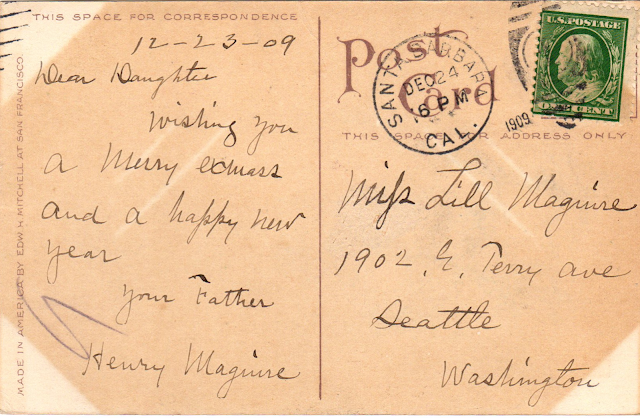 THIS SPACE FOR CORRESPONDENCE
12-23-09
Dear Daughter
Wishing you
a Merry exmass
and a happy new
year
Your Father
Henry Maguire
MADE IN AMERICA BY EDW. H. MITCHELL AT SAN FRANCISCO
Post
Card
THIS SPACE FOR ADDRESS ONLY
SANTA BARBARA
DEC 24
6 PM
1909
CAL.
U.S. POSTAGE
ONE CENT
Miss Lill Maguire
1902 E. Terry ave
Seattle
Washington